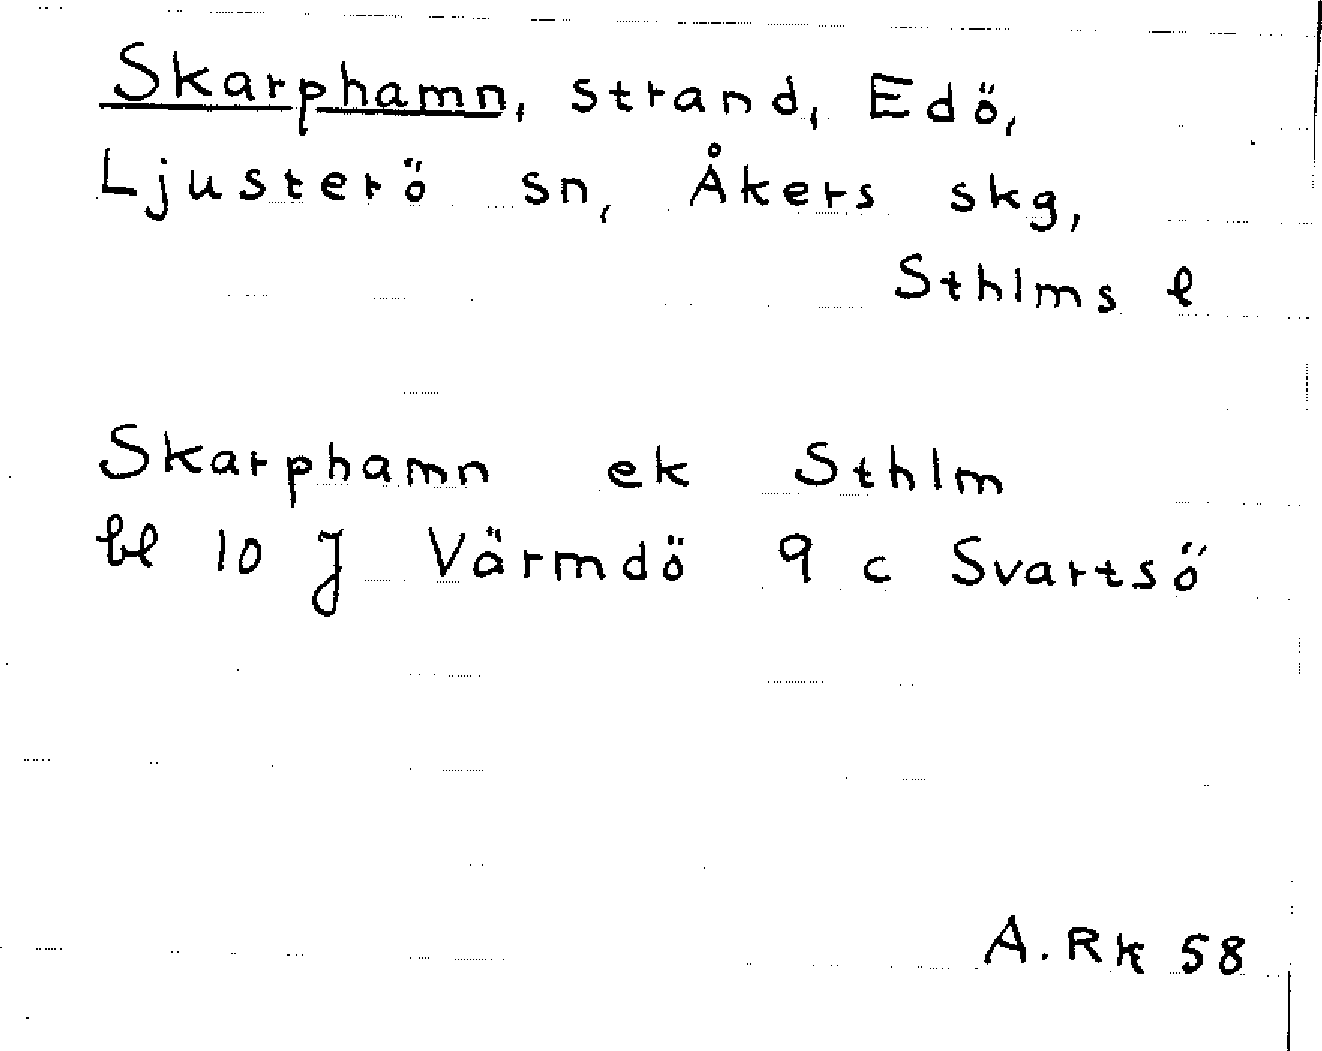 Skarphamn, strand, Edö,
Ljusterö sn, Åkers skg,
Sthlms l
Skarphamn ek Sthlm
bl 10 J Värmdö 9 c Svartsö
A. Rk 58